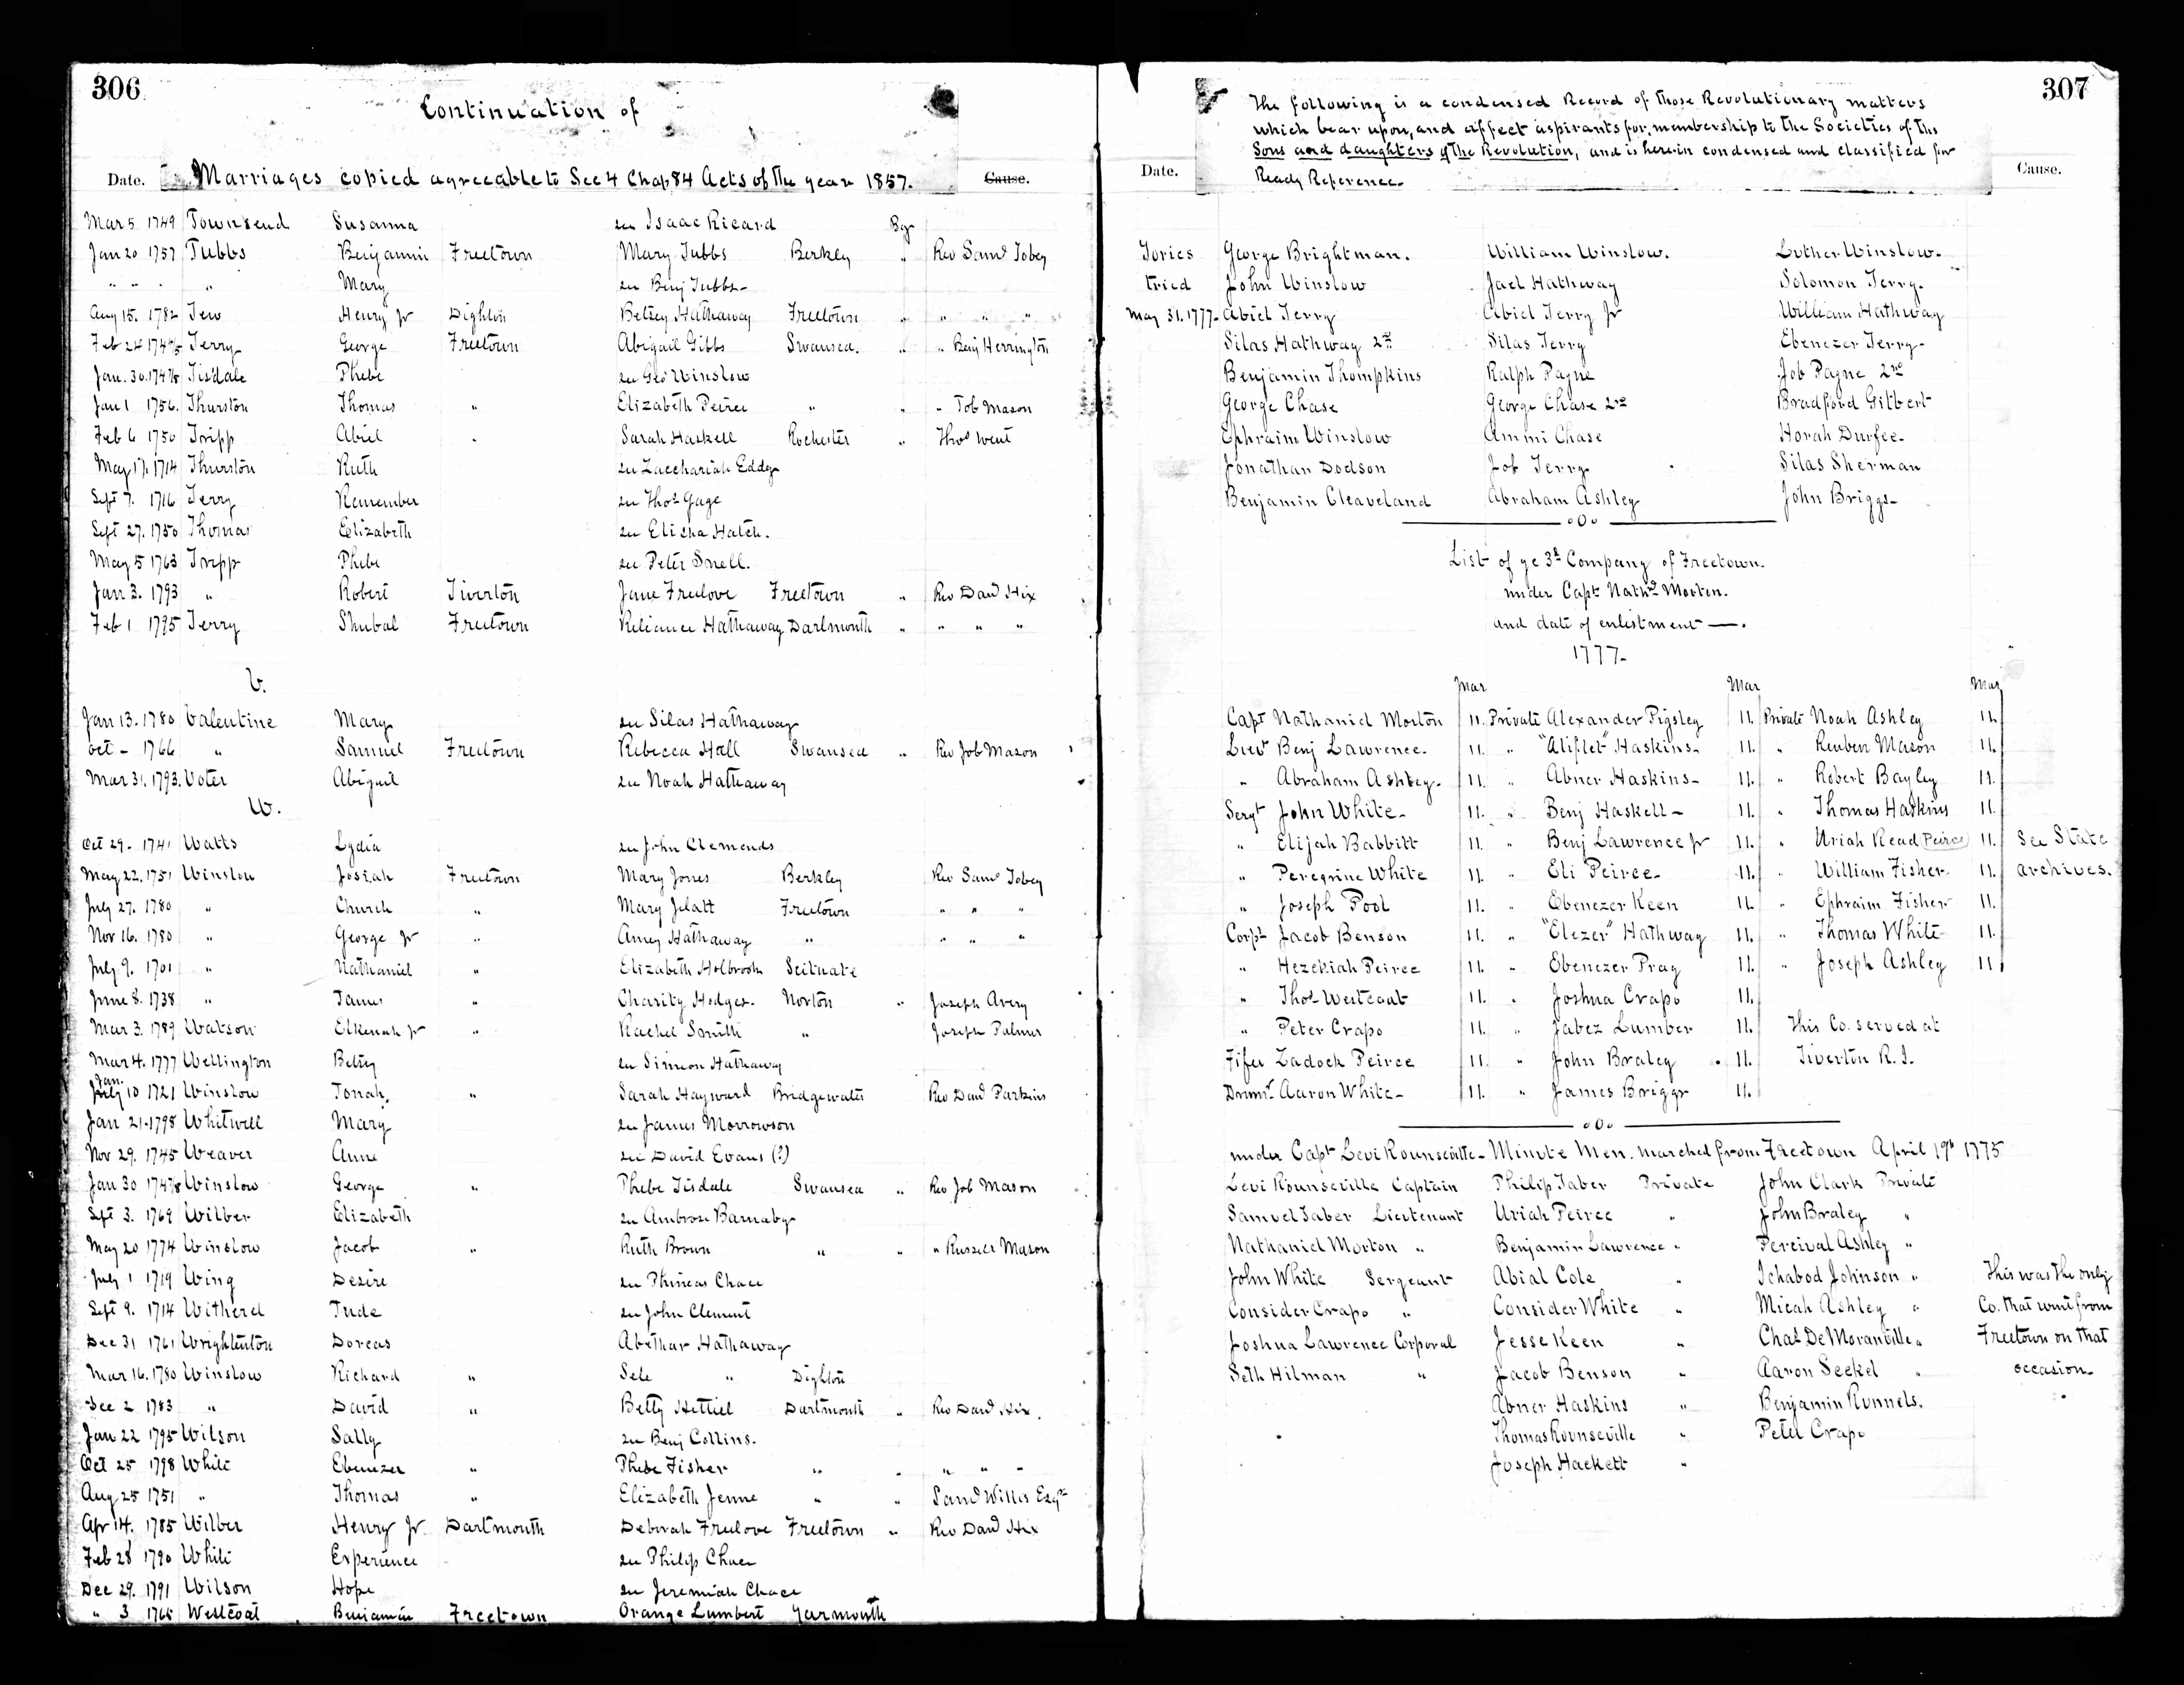 306
Continuation of
Date. Marriages copied agreeable to Sec 4 Chap 84 Acts of the year 1857. Cause.
Mar 5 1749 Townsend Susanna see Isaac Ricard By
Jan 20 1757 Tubbs Benjamin Freetown Mary Tubbs Berkley " Rev Saml Tobey
" " " " Mary see Benj Tubbs
Aug 15. 1782 Tew Henry Jr Dighton Betsey Hathaway Freetown " " " "
Feb 24 1747/5 Terry George Freetown Abigail Gibbs Swansea. " " Benj Herrington
Jan. 30. 1747/8 Tisdale Phebe see Geo Winslow
Jan 1 1756. Thurston Thomas " Elizabeth Peirce " " " Job Mason
Feb 6 1750 Tripp Abiel " Sarah Haskell Rochester " Thos West
May 17. 1714 Thurston Ruth see Zacchariah Eddy
Sept 7. 1716 Terry Remember see Thos Gage
Sept 27. 1750 Thomas Elizabeth see Elisha Hatch.
May 5 1763 Tripp Phebe see Peter Snell.
Jan 3. 1793 " Robert Tiverton Jane Freelove Freetown " Rev Danl Hix
Feb 1 1795 Terry Shubal Freetown Reliance Hathaway Dartmouth " " " "
V.
Jan 13. 1780 Valentine Mary see Silas Hathaway
Oct - 1766 " Samuel Freetown Rebecca Hall Swansea " Rev Job Mason
Mar 31. 1793. Voter Abigail see Noah Hathaway
W.
Oct 29 - 1741 Watts Lydia see John Clemends
May 22. 1751 Winslow Josiah Freetown Mary Jones Berkley Rev Saml Tobey
July 27. 1780 " Church " Mary Jelatt Freetown " " "
Nov 16. 1780 " George Jr " Amey Hathaway " " " "
July 9. 1701 " Nathaniel " Elizabeth Holbrook Scituate
June 8. 1738 " James " Charity Hodges - Norton " Joseph Avery
Mar 3. 1789 Watson Elkenah Jr " Rachel Smith " Joseph Palmer
Mar 4. 1777 Wellington Betsey see Simeon Hathaway
Jan. 10 1721 Winslow Jonah, " Sarah Hayward Bridgewater Rev Danl Parkins
Jan 21 - 1798 Whitwell Mary see James Morrowson
Nov 29. 1745 Weaver Anne see David Evans (?)
Jan 30 1747/8 Winslow George " Phebe Tisdale Swansea " Rev Job Mason
Sept 3. 1769 Wilber Elizabeth see Ambrose Barnaby
May 20 1774 Winslow Jacob " Ruth Brown " " " Russell Mason
July 1 1719 Wing Desire see Phineas Chace
Sept 9. 1714 Witherel Jude see John Clement
Dec 31 1761 Wrightenton Dorcas Abethar Hathaway
Mar 16. 1780 Winslow Richard " Sele " Dighton
Dec 2 1783 " David " Betty Kettiel Dartmouth " Rev Danl Hix.
Jan 22 1795 Wilson Sally see Benj Collins.
Oct 25 1798 White Ebenezer " Phebe Fisher " " " " "
Aug 25 1751 " Thomas " Elizabeth Jenne " " Saml Willis Esqr
Apr 14. 1785 Wilber Henry Jr. Dartmouth Deborah Freelove Freetown " Rev Danl Hix
Feb 28 1790 White Experience see Philip Chace
Dec 29. 1791 Wilson Hope see Jeremiah Chace
" 3 1765 Westcoat Benjamin Freetown Orange Lumbert Yarmouth
307
The following is a condensed Record of those Revolutionary matters
which bear upon, and affect aspirants for, membership to the Societies of the
Sons and daughters of the Revolution, and is herein condensed and classified for
Ready Reference.
Date. Cause.
Tories George Brightman. William Winslow. Luther Winslow.
tried John Winslow Jael Hathway Solomon Terry.
May 31. 1777. Abiel Terry Abiel Terry Jr William Hathway
Silas Hathway 2nd Silas Terry Ebenezer Terry-
Benjamin Thompkins Ralph Payne Job Payne 2nd
George Chase George Chase 2nd Bradford Gilbert
Ephraim Winslow Ammi Chase Horah Durfee-
Jonathan Dodson Job Terry Silas Sherman
Benjamin Cleaveland Abraham Ashley John Briggs-
oOo
List of ye 3d Company of Freetown.
under Capt Nathl Morton.
and date of enlistment —.
1777-
Mar Mar Mar
Capt Nathaniel Morton 11. Private Alexander Pigsley 11. Private Noah Ashley 11.
Lieut Benj Lawrence. 11. " "Aliflet" Haskins- 11. " Reuben Mason 11.
" Abraham Ashley- 11. " Abner Haskins- 11. " Robert Bayley 11.
Sergt John White- 11. " Benj Haskell- 11. " Thomas Haskins 11.
" Elijah Babbitt 11. " Benj Lawrence Jr 11. " Uriah Read (Peirce) 11. See State
" Peregrine White 11. " Eli Peirce- 11. " William Fisher- 11. archives.
" Joseph Pool 11. " Ebenezer Keen 11. " Ephraim Fisher 11.
Corpl Jacob Benson 11. " "Elezer" Hathway 11. " Thomas White 11.
" Hezekiah Peirce 11. " Ebenezer Pray 11. " Joseph Ashley 11.
" Thos Westcoat 11. " Joshua Crapo 11.
" Peter Crapo 11. " Jabez Lumber 11. This Co. served at
Fifer Zadock Peirce 11. " John Braley 11. Tiverton R.I.
Drumr Aaron White- 11. " James Briggs 11.
oOo
under Capt Levi Rounseville- Minute Men. marched from Freetown April 19th 1775
Levi Rounseville Captain Philip Taber Private John Clark Private
Samuel Taber Lieutenant Uriah Peirce " John Braley "
Nathaniel Morton " Benjamin Lawrence " Percival Ashley "
John White Sergeant Abial Cole " Ichabod Johnson " This was the only
Consider Crapo " Consider White " Micah Ashley " Co. that went from
Joshua Lawrence Corporal Jesse Keen " Chas DeMoranville " Freetown on that
Seth Hilman " Jacob Benson " Aaron Seekel " occasion-
Abner Haskins " Benjamin Runnels.
Thomas Rounseville " Peter Crapo
Joseph Hackett "